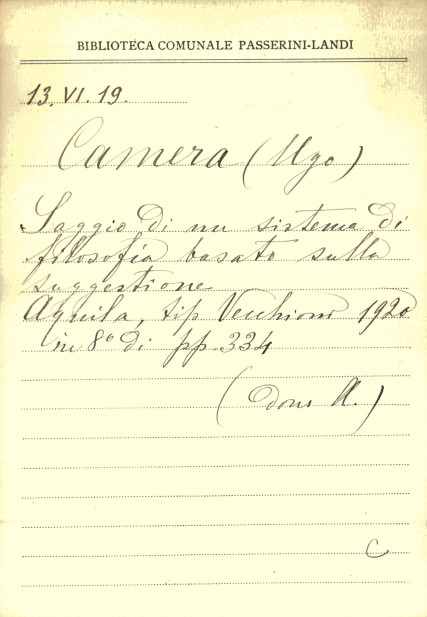 BIBLIOTECA COMUNALE PASSERINI-LANDI
13.VI.19.
Camera (Ugo)
Saggio di un sistema di
filosofia basato sulla
suggestione
Aquila, tip Vecchioni 1920
in 8° di pp. 334
(dono A.)
C